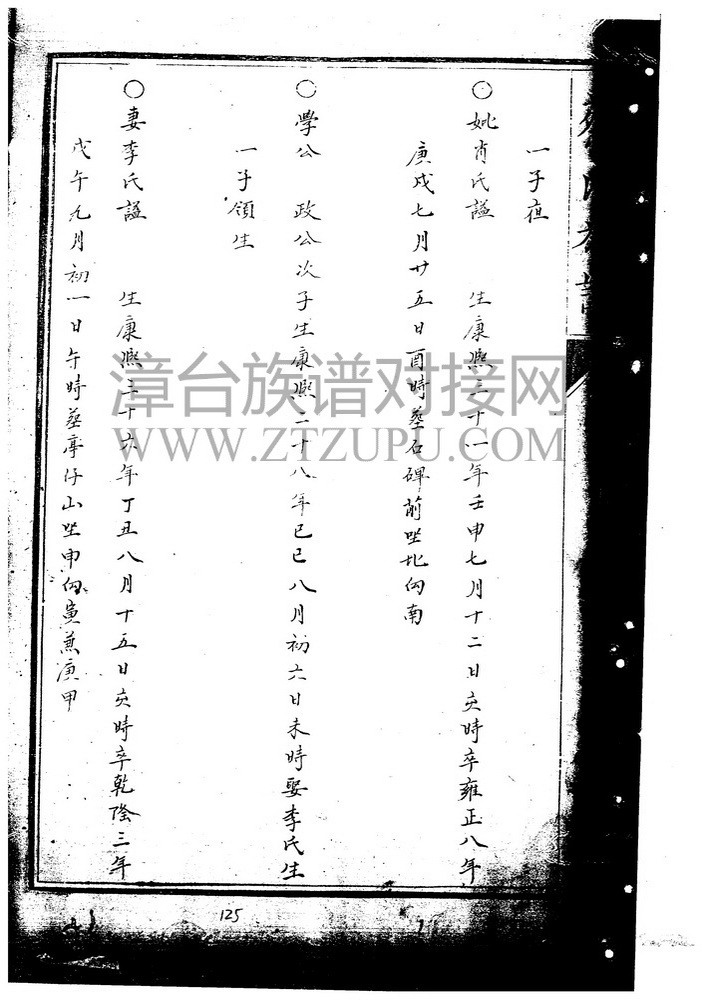 一子痖
○妣肖氏謚 生康熈三十一年壬申七月十二日亥時卒雍正八年
庚戌七月廿五日酉時葬石碑前坐北向南
○學公 政公次子生康熈二十八年己巳八月初六日未時娶李氏生
一子領生
○妻李氏謚 生康熈三十六年丁丑八月十五日亥時卒乾隆三年
戊午九月初一日午時葬亭仔山坐申向寅兼庚甲
漳台族谱对接网
WWW.ZTZUPU.COM
125